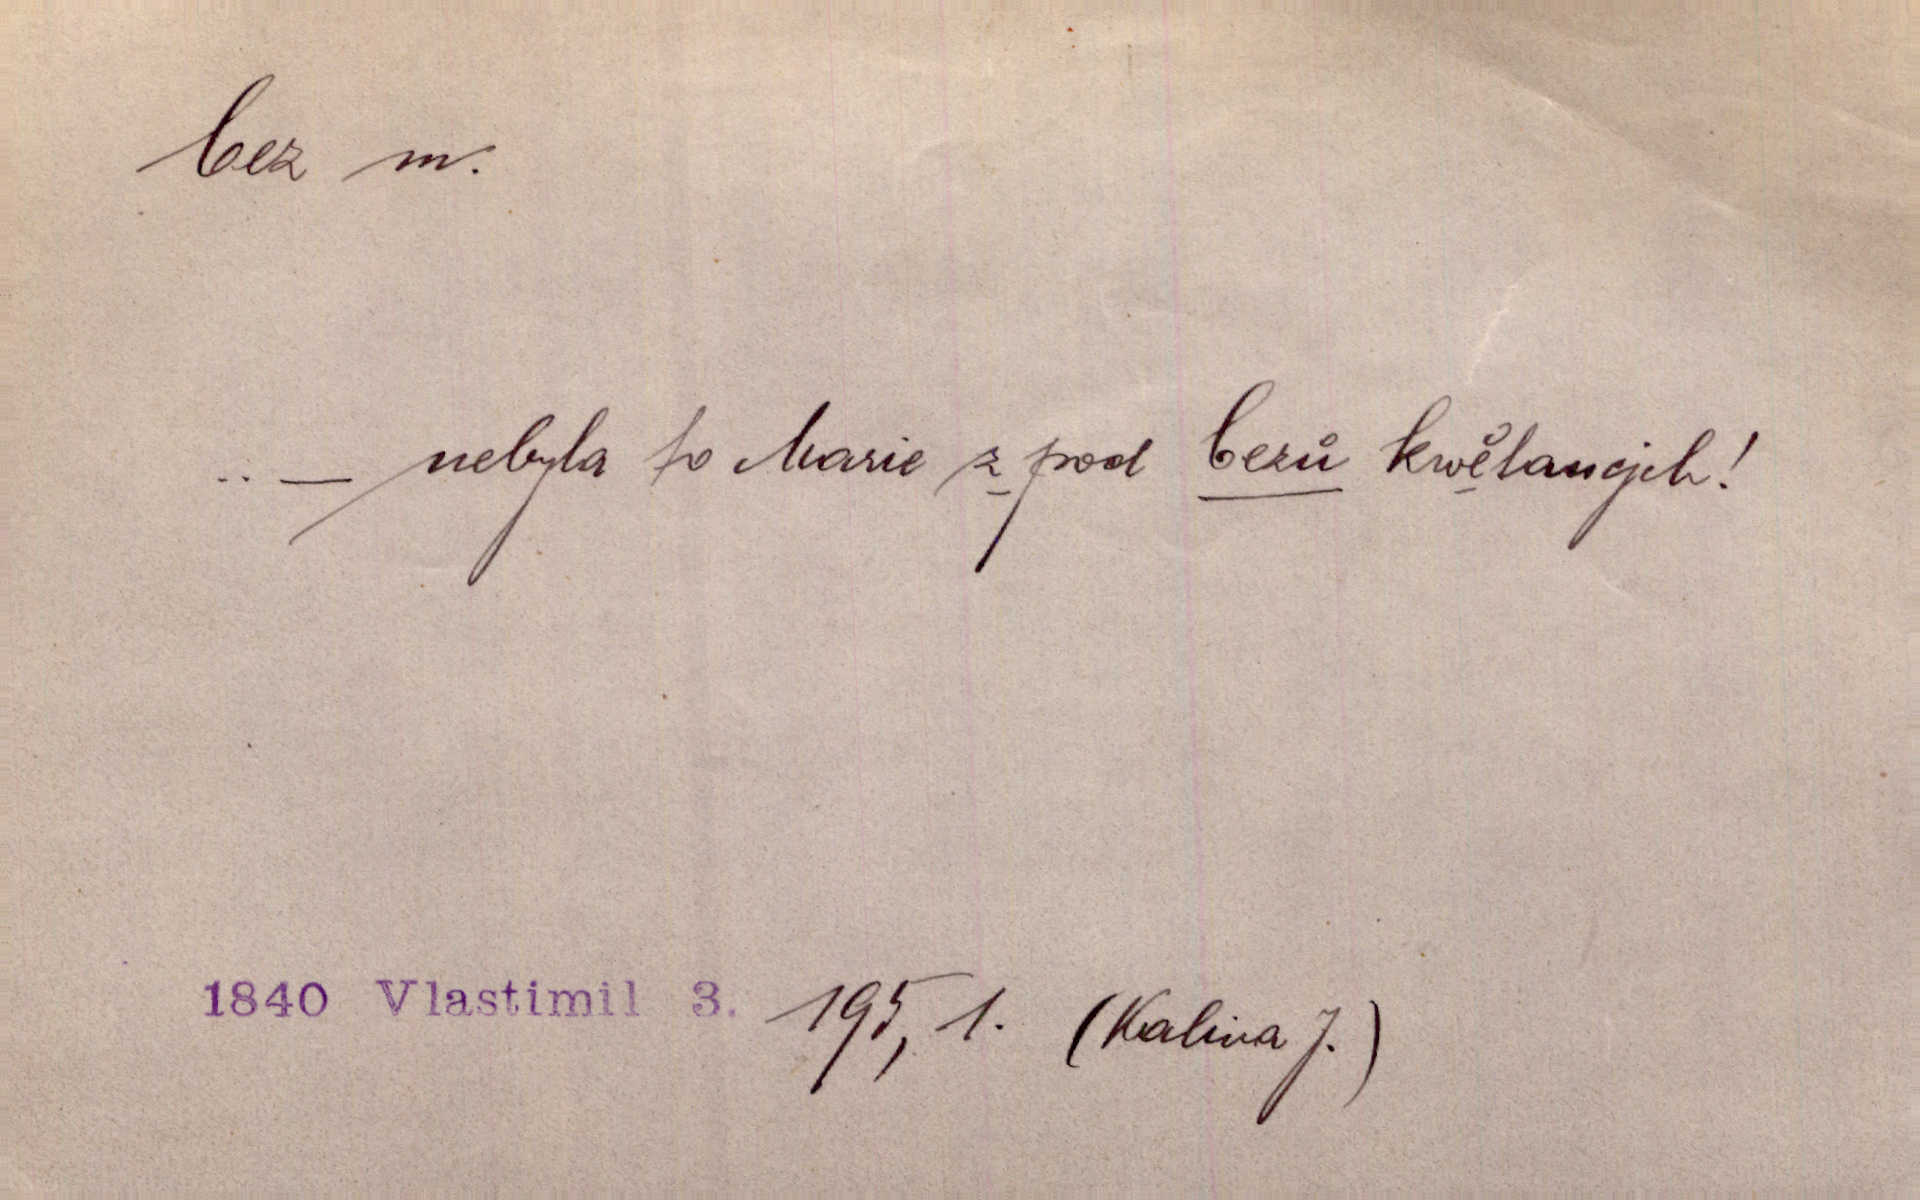 bez m.
.. — nebyla to Marie z pod bezů kwětaucjch!
1840 Vlastimil 3. 195, 1. (Kalina J.)